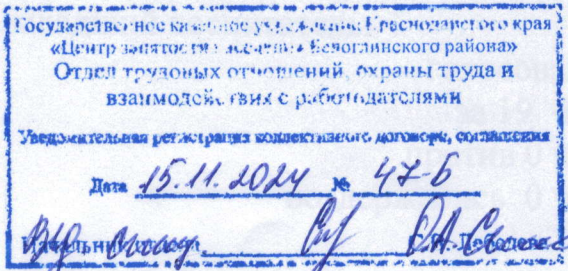 Государственное казенное учреждение Краснодарского края
«Центр занятости населения Белоглинского района»
Отдел трудовых отношений, охраны труда и
взаимодействия с работодателями
Уведомительная регистрация коллективного договора, соглашения
Дата 15.11.2024 № 47-Б
Начальник отдела